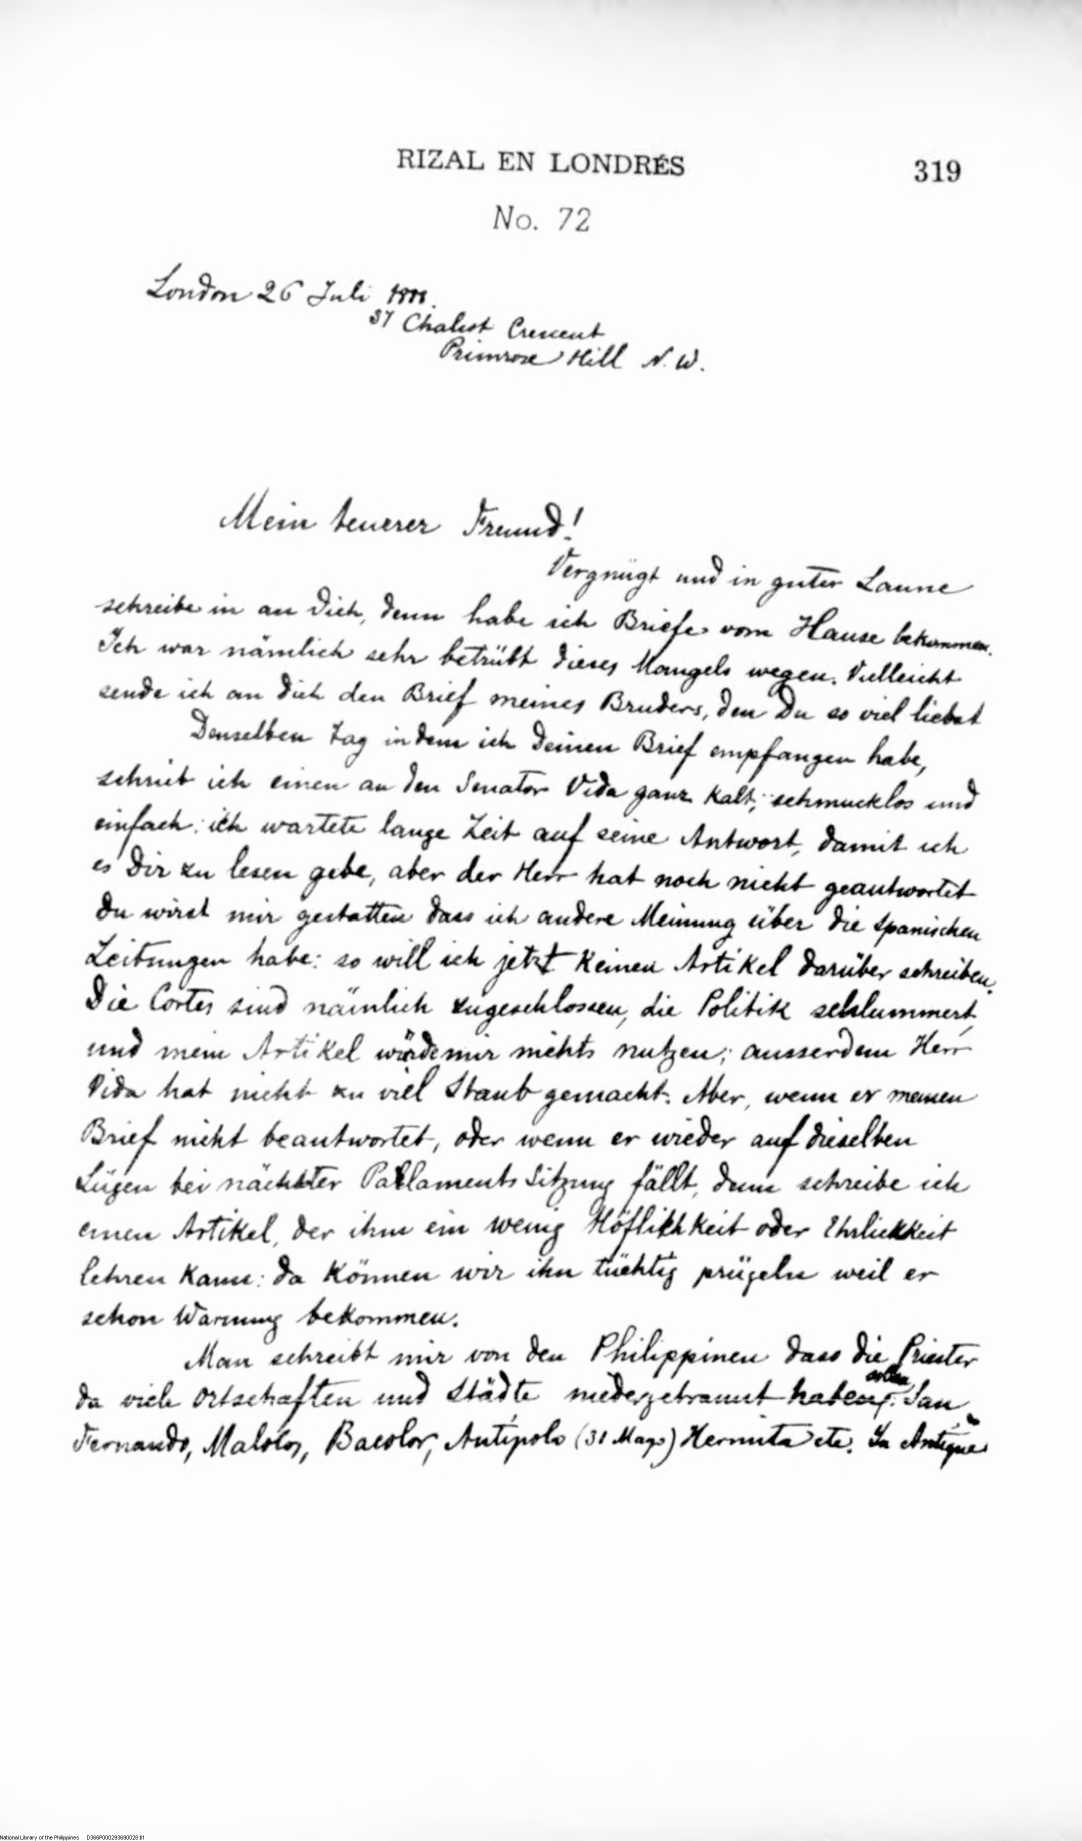 RIZAL EN LONDRÉS
319
No. 72
London 26 Juli 1888.
37 Chalcot Crescent
Primrose Hill N. W.
Mein teuerer Freund!
Vergnügt und in guter Laune
schreibe in an Dich, denn habe ich Briefe vom Hause bekommen.
Ich war nämlich sehr betrübt dieses Mangels wegen. Vielleicht
sende ich an Dich den Brief meines Bruders, den Du so viel liebst
Denselben Tag in dem ich Deinen Brief empfangen habe,
schrieb ich einen an den Senator Vida ganz kalt, schmucklos und
einfach: ich wartete lange Zeit auf seine Antwort, damit ich
es Dir zu lesen gebe, aber der Herr hat noch nicht geantwortet
Du wirst mir gestatten dass ich andere Meinung über die spanischen
Zeitungen habe: so will ich jetzt keinen Artikel darüber schreiben.
Die Cortes sind nämlich zugeschlossen, die Politik schlummert,
und mein Artikel würde mir nichts nutzen; ausserdem Herr
Vida hat nicht zu viel Staub gemacht. Aber, wenn er meinen
Brief nicht beantwortet, oder wenn er wieder auf dieselben
Lügen bei nächster Parlaments Sitzung fällt, dann schreibe ich
einen Artikel, der ihm ein wenig Höflichkeit oder Ehrlichkeit
lehren kann: da können wir ihn tüchtig prügeln weil er
schon Warnung bekommen.
Man schreibt mir von den Philippinen dass die Priester
da viele Ortschaften und Städte niedergebrannt haben sollen. San
Fernando, Malolos, Bacolor, Antipolo (31 Mayo) Hermita etc. In Antique
National Library of the Philippines